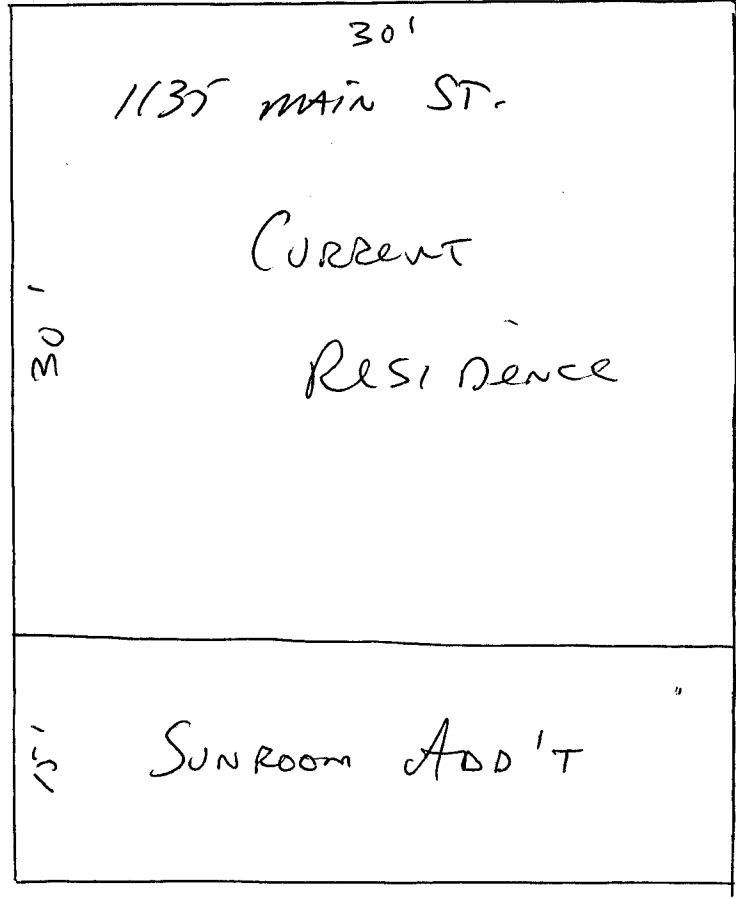 30'
1135 MAIN ST.
CURRENT
30'
RESIDENCE
15'
SUNROOM ADD'T